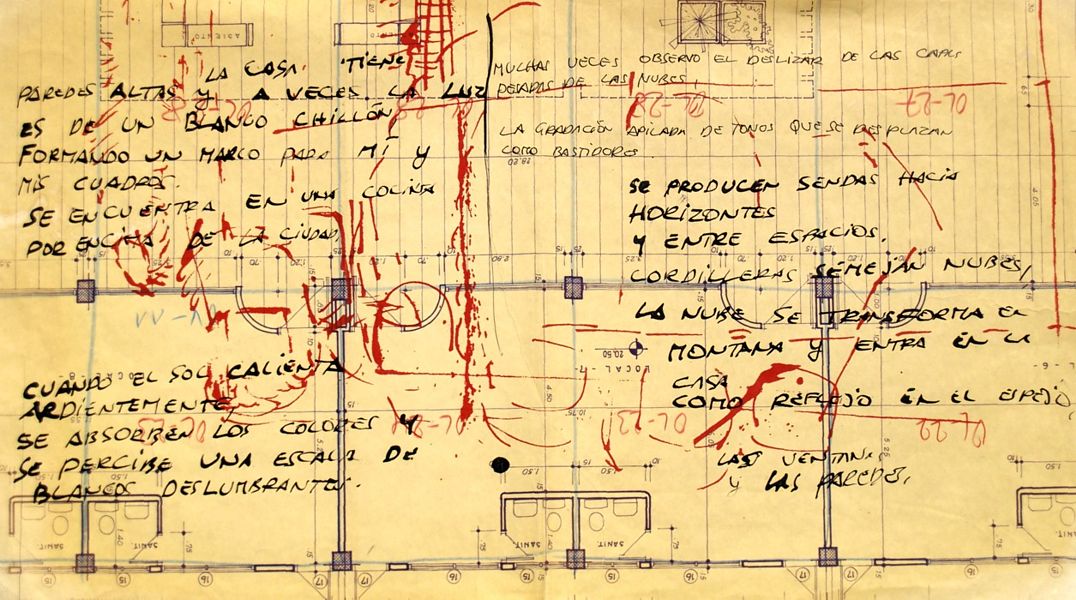 LA CASA TIENE
PAREDES ALTAS Y A VECES LA LUZ
ES DE UN BLANCO CHILLÓN
FORMANDO UN MARCO PARA MÍ Y
MIS CUADROS.
SE ENCUENTRA EN UNA COLINA
POR ENCIMA DE LA CIUDAD.
CUANDO EL SOL CALIENTA
ARDIENTEMENTE,
SE ABSORBEN LOS COLORES Y
SE PERCIBE UNA ESCALA DE
BLANCOS DESLUMBRANTES.
MUCHAS VECES OBSERVO EL DESLIZAR DE LAS CAPAS
PESADAS DE LAS NUBES,
LA GRADACIÓN APILADA DE TONOS QUE SE DESPLAZAN
COMO BASTIDORES.
SE PRODUCEN SENDAS HACIA
HORIZONTES
Y ENTRE ESPACIOS.
CORDILLERAS SEMEJAN NUBES,
LA NUBE SE TRANSFORMA EN
MONTAÑA Y ENTRA EN LA
CASA
COMO REFLEJO EN EL ESPEJO,
LAS VENTANAS
Y LAS PAREDES.
ASIENTO
ASIENTO
OL-28
OL-27
OL-23
OL-22
18.20
20.50
LOCAL - 7
L - 6 -
4.05
10.75
5.25
5.25
1.50
1.50
1.50
1.50
1.40
1.40
SANIT.
SANIT.
SANIT.
SANIT.
SANIT.
.75
.75
.75
16
16
17
17
15
16
16
17
17